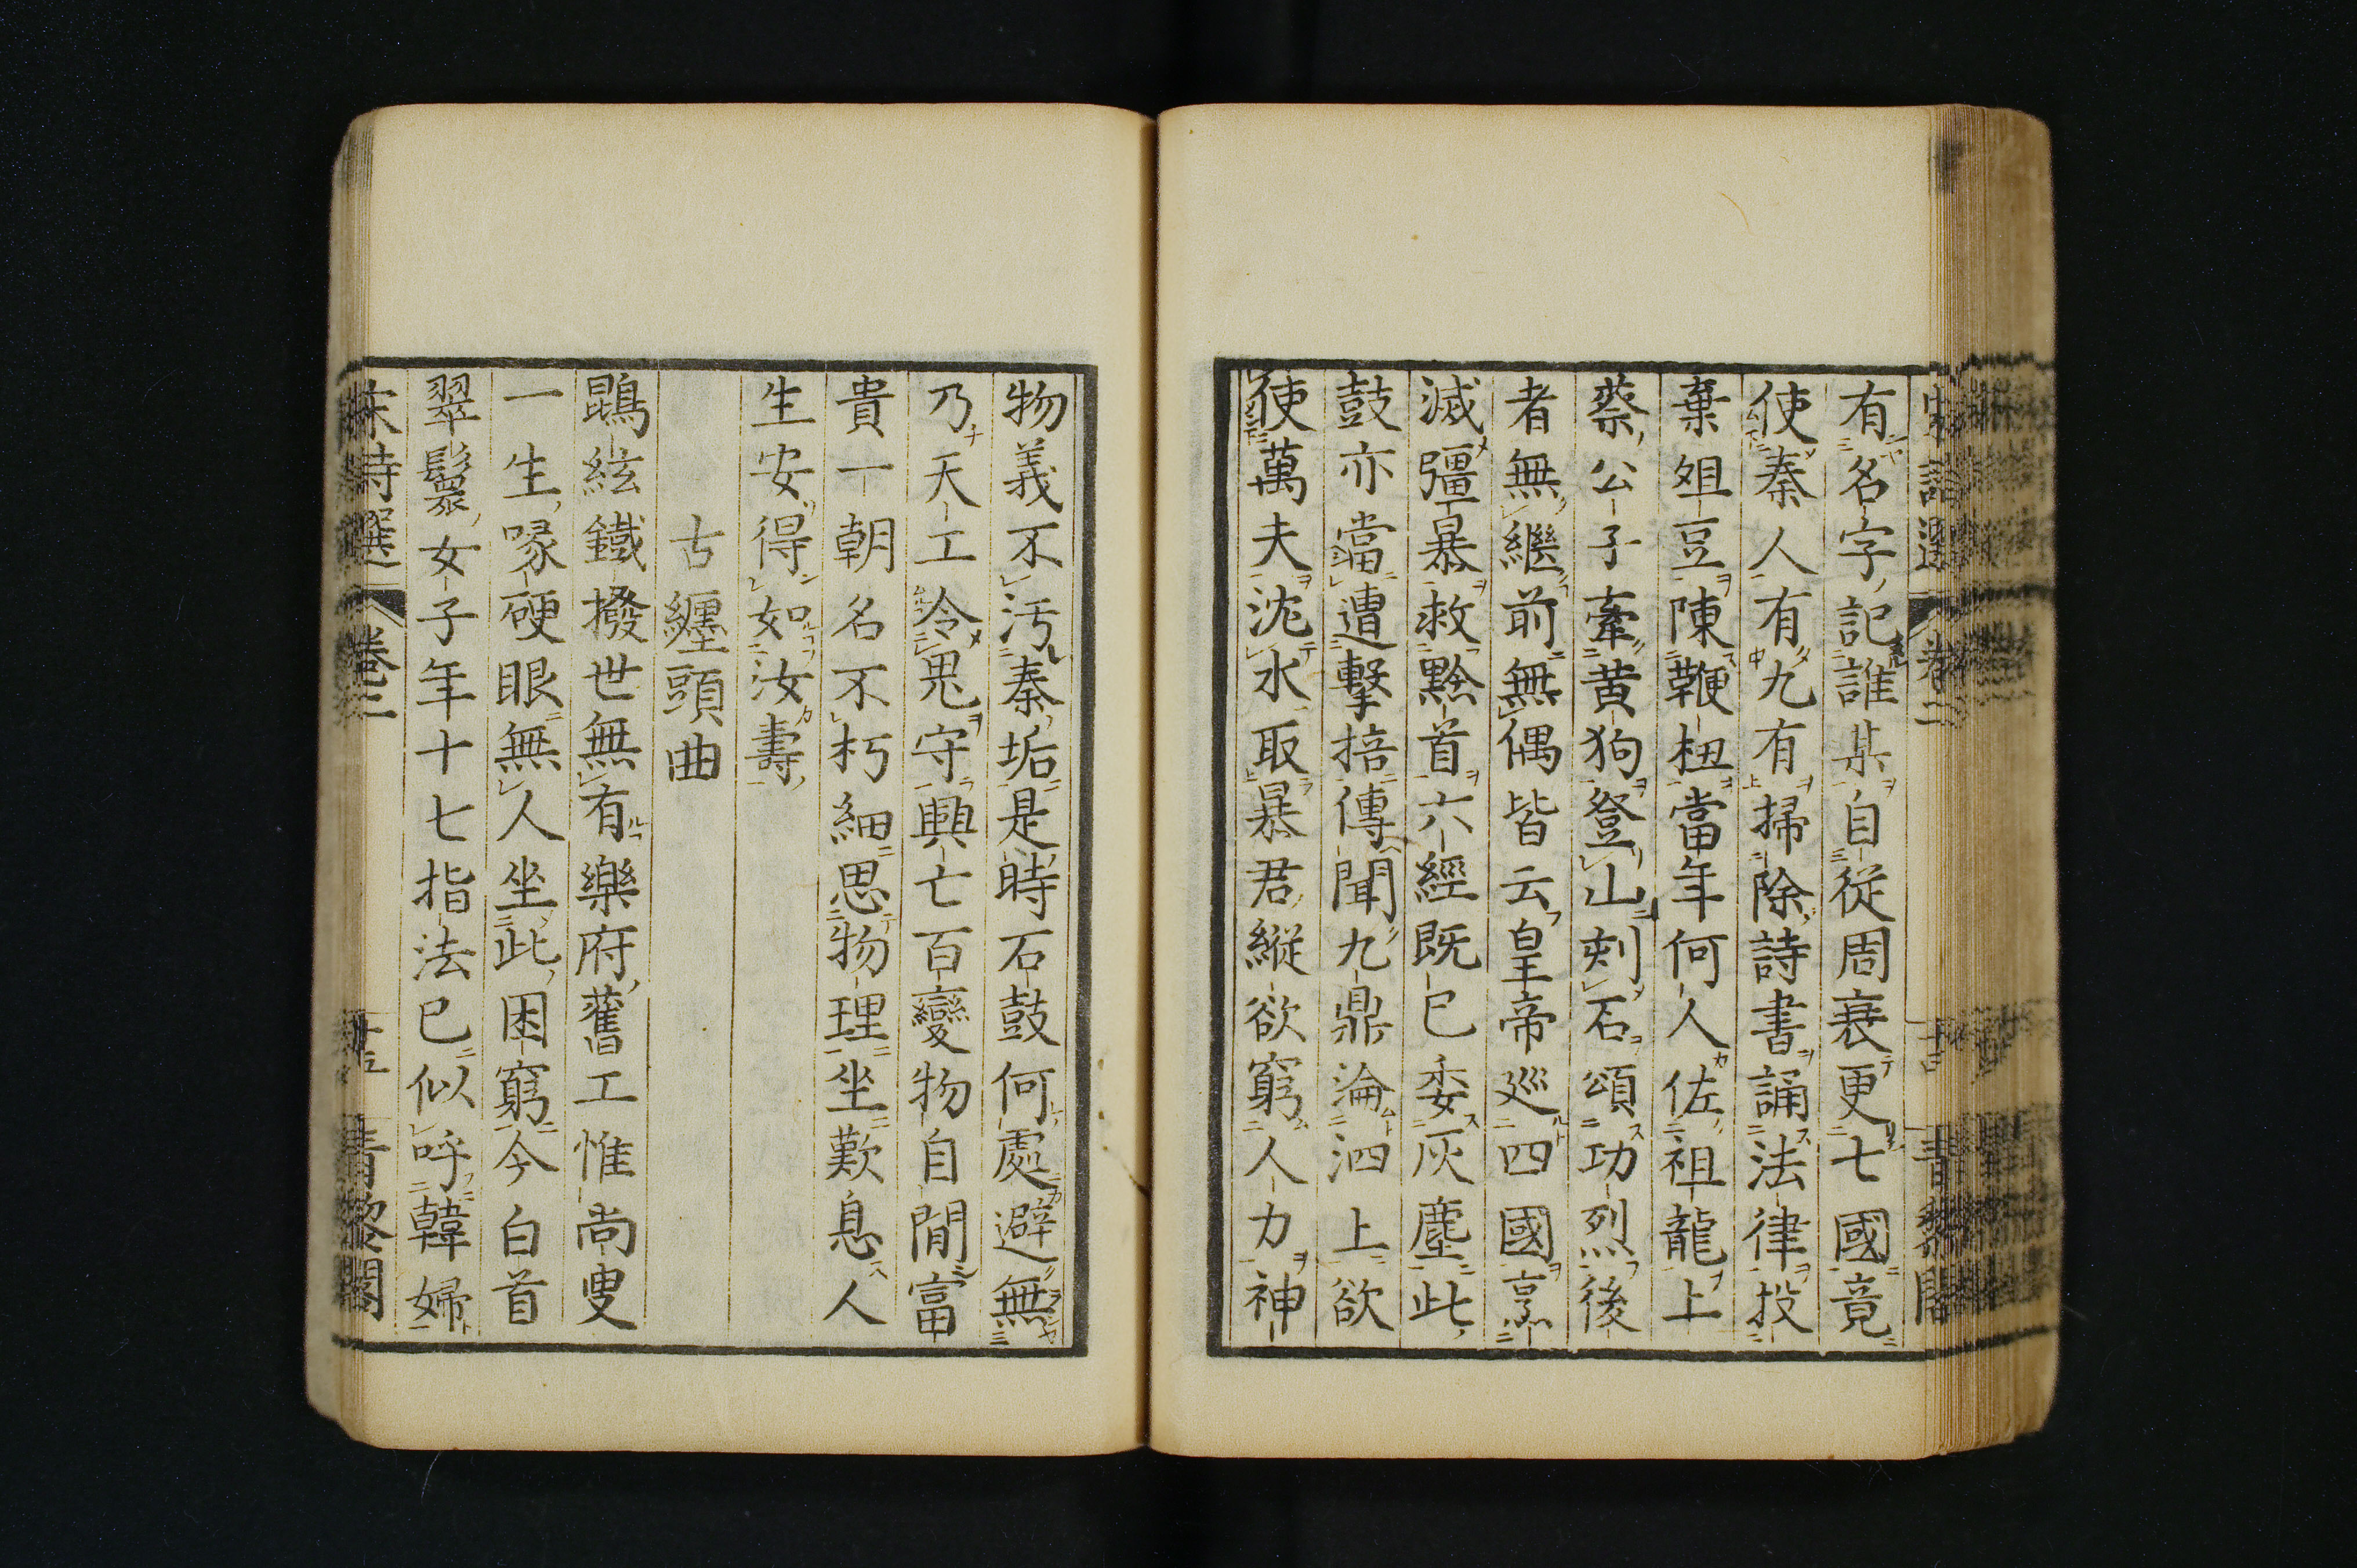 有名字記誰某自從周衰更七國竟
使秦人有九有掃除詩書誦法律投
棄俎豆陳鞭杻當年何人佐祖龍上
蔡公子牽黄狗登山刻石頌功烈後
者無繼前無偶皆云皇帝巡四國烹
滅彊暴救黔首六經既已委灰塵此
鼓亦當遭擊掊傳聞九鼎淪泗上欲
使萬夫沈水取暴君縱欲窮人力神
物義不汚秦垢是時石鼓何處避無
乃天工令鬼守興亡百變物自閒富
貴一朝名不朽細思物理坐歎息人
生安得如汝壽
古纏頭曲
鵾絃鐵撥世無有樂府舊工惟尚叟
一生喙硬眼無人坐此困窮今白首
翠鬟女子年十七指法已似呼韓婦
宋詩選 卷二 十五 青藜閣